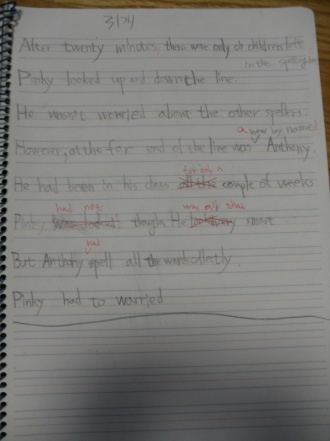 3/24
After twenty minutes, there were only six children left
in the spelling bee
Pinky looked up and down the line.
He wasn't worried about the other spellers.
a new boy named
However, at the far end of the line was Anthony.
for only a
He had been in his class couple of weeks
had not was only that
Pinky thought He smart
had
But Anthony spell all the words correctly.
Pinky had to worried